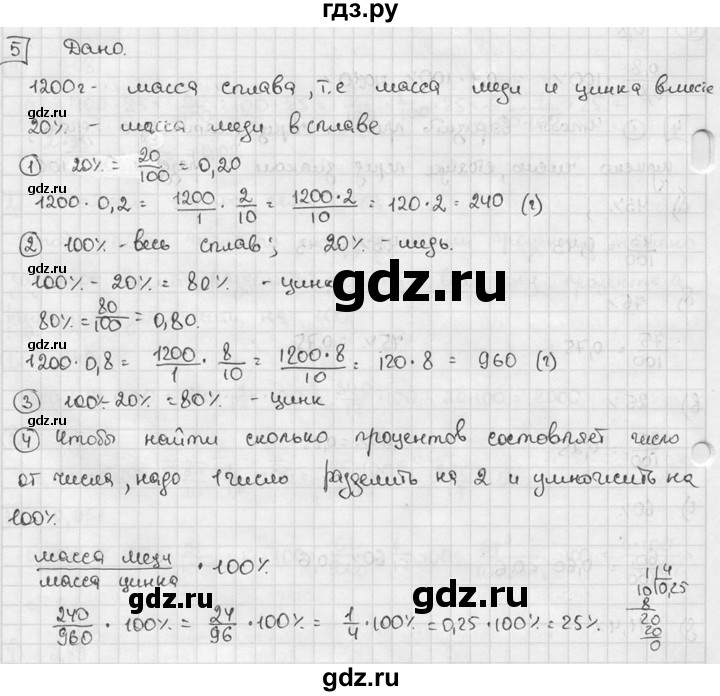 гдз.ру
5 Дано.
1200г - масса сплава, т.е масса меди и цинка вместе
20% - масса меди в сплаве
① 20% = 20/100 = 0,20
1200 · 0,2 = 1200/1 · 2/10 = 1200·2/10 = 120·2 = 240 (г)
② 100% - весь сплав; 20% - медь.
100% - 20% = 80% - цинк
80% = 80/100 = 0,80.
1200 · 0,8 = 1200/1 · 8/10 = 1200·8/10 = 120·8 = 960 (г)
③ 100% 20% = 80% - цинк
④ Чтобы найти сколько процентов состовляет число
от числа, надо 1 число разделить на 2 и умножить на
100%.
масса меди/масса цинка · 100%
240/960 · 100% = 24/96 · 100% = 1/4 · 100% = 0,25 · 100% = 25%
1 | 4
10 | 0,25
8
20
20
0
gdz.ru
gdz.ru
gdz.ru
gdz.ru
gdz.ru
gdz.ru
gdz.ru
gdz.ru
gdz.ru
gdz.ru
gdz.ru
gdz.ru
gdz.ru
gdz.ru